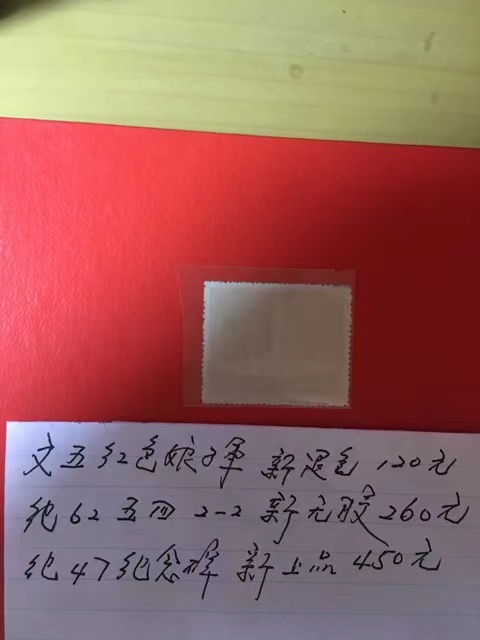 文五红色娘子军 新退色 120元
纪62五四 2-2 新无胶 260元
纪47纪念碑 新上品 450元